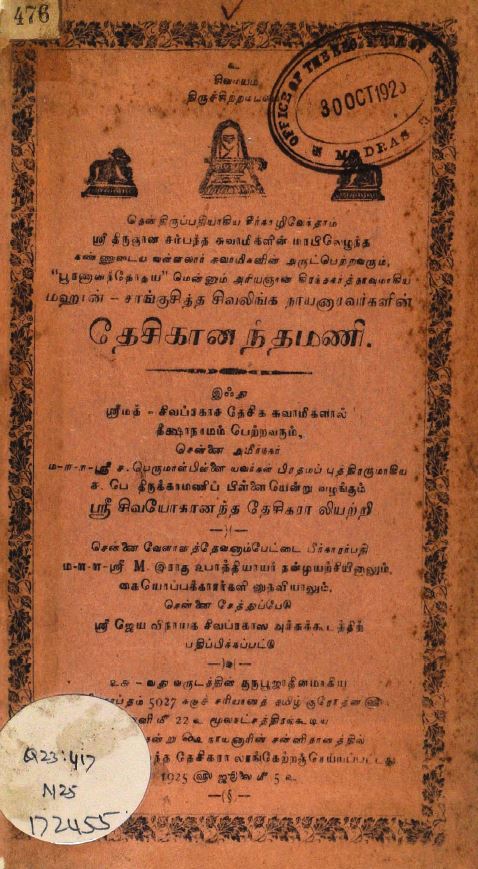 476
உ
சிவமயம்
திருச்சிற்றம்பலம்
OFFICE OF THE REGISTRAR OF
30 OCT 192
MADRAS
தென்திருப்பதியாகிய சீர்காழிவேந்தராம்
ஸ்ரீ திருஞான சம்பந்த சுவாமிகளின்
கண்ணுடைய வள்ளலார் சுவாமிகளின் அருட்பெற்றவரும்,
"பூரணானந்தோதய" மென்னும் அரியஞான கிரந்தகர்த்தாவுமாகிய
மஹான் - சாங்குசித்த சிவலிங்க நாயனாரவர்களின்
தேசிகானந்தமணி.
இஃது
ஸ்ரீமத் - சிவப்ரகாச தேசிக சுவாமிகளால்
தீக்ஷாநாமம் பெற்றவரும்,
சென்னை
ம-ள-ள-ஸ்ரீ ச. பெருமாள்பிள்ளை யவர்கள் பிரதமப் புத்திரருமாகிய
ச. பெ திருக்காமணிப் பிள்ளையென்று வழங்கும்
ஸ்ரீ சிவயோகானந்த தேசிகரா லியற்றி
சென்னை
ம-ள-ள-ஸ்ரீ M. இராது உபாத்தியாயர் நன்முயற்சியினாலும்,
கையொப்பக்காரர்களி னுதவியாலும்,
சென்னை சேத்துப்பேடு
ஸ்ரீ ஜெய விநாயக சிவப்ரகாஸ அச்சுக்கூடத்திற்
பதிப்பிக்கப்பட்டு
வது வருடத்தின் குருபூஜாதினமாகிய
5027 க்குச் சரியான தமிழ் குரோதன
னி மீ 22 உ மூலநட்சத்திரங்கூடிய
ன்று நாயனாரின் சன்னிதானத்தில்
ந்த தேசிகரா லரங்கேற்றஞ்செய்யப்பட்டது
1925 ௵ ஜூலை மீ 5 உ
Q23:417
N25
172455